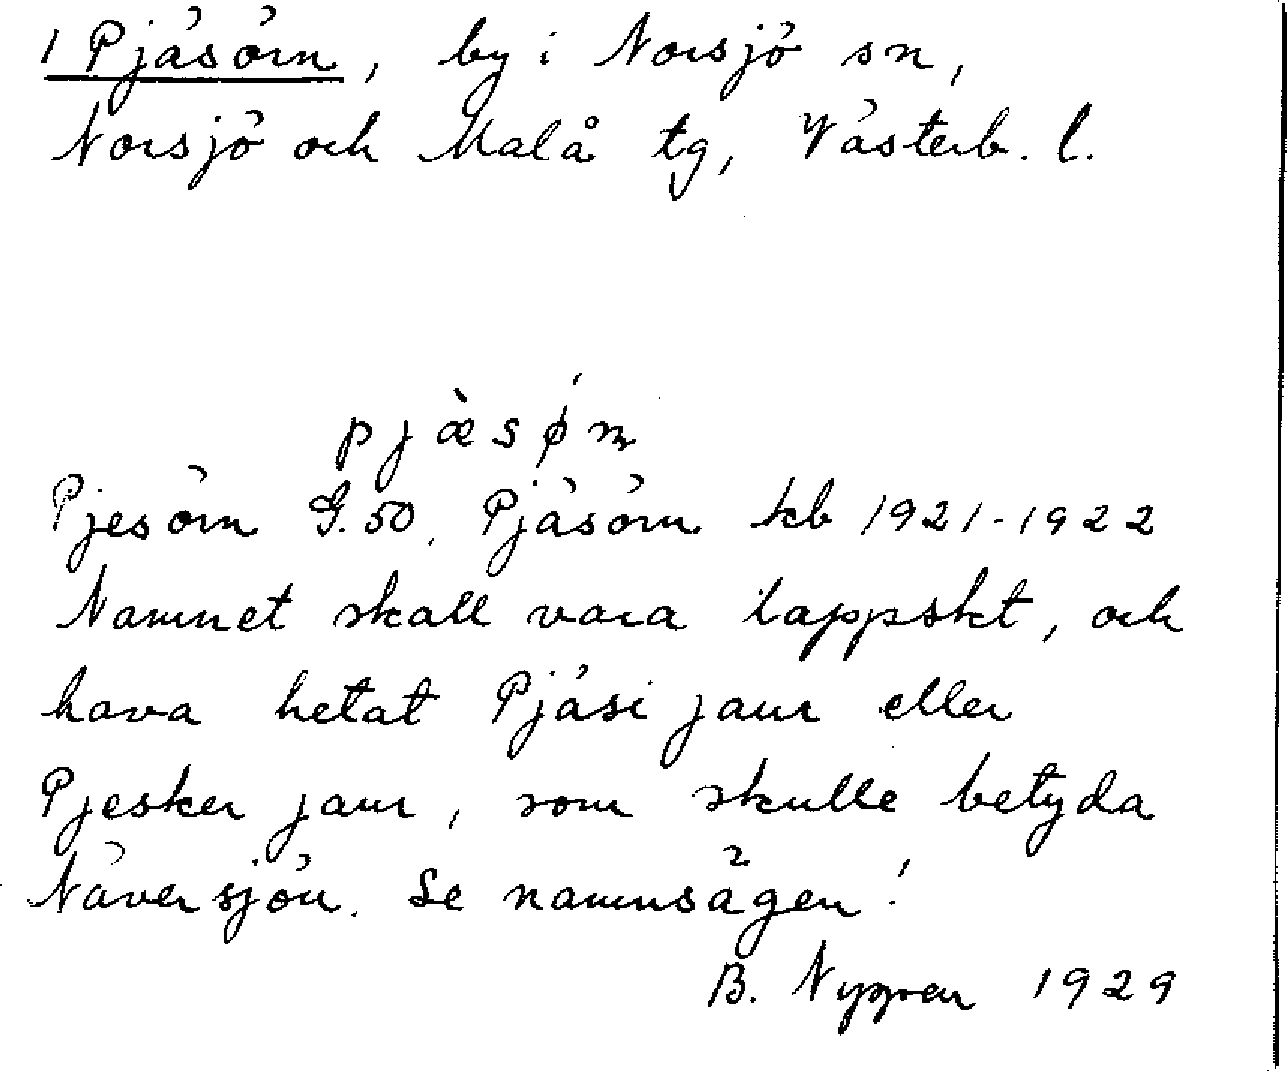 1 Pjäsörn, by i Norsjö sn,
Norsjö och Malå tg, Västerb. l.
pjæ̀søń
Pjesörn G.50, Pjäsörn kb 1921-1922
Namnet skall vara lappskt, och
hava hetat Pjäsi jaur eller
Pjesker jaur, som skulle betyda
Näversjön. Se namnsägen!
B. Nygren 1929